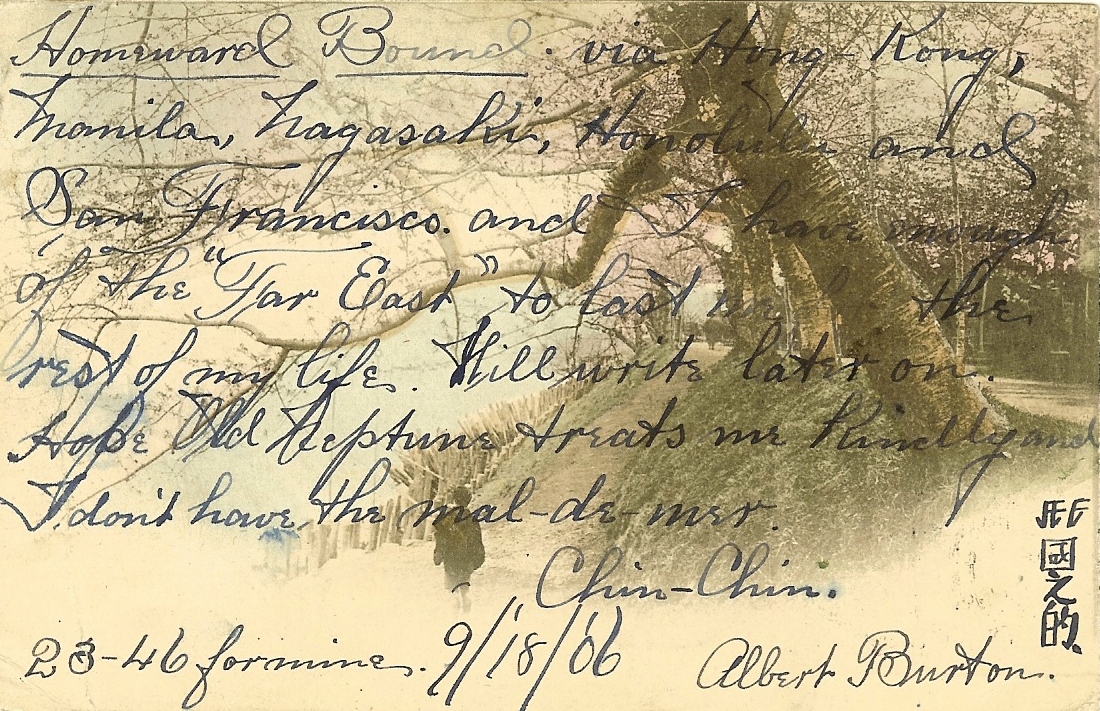 Homeward Bound. via Hong-Kong,
Manila, Nagasaki, Honolulu and
San Francisco. and I have enough
of the "Far East" to last me the
rest of my life. Will write later on.
Hope Old Neptune treats me Kindly and
I don't have the mal-de-mer.
Chin-Chin.
23-46 for mine. 9/18/06
Albert Burton.
國之的